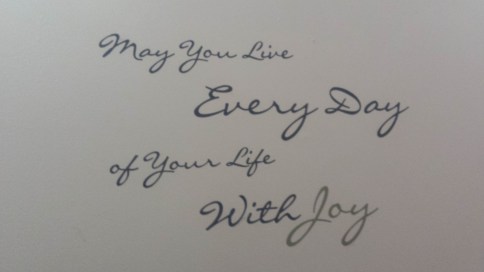 May You Live
Every Day
of Your Life
With Joy